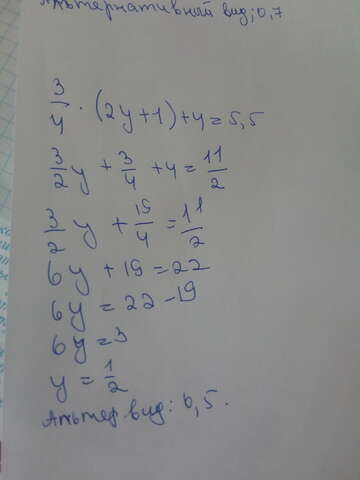 Альтернативный вид: 0,7
3/4 · (2y+1)+4=5,5
3/2 y + 3/4 + 4 = 11/2
3/2 y + 19/4 = 11/2
6y + 19 = 22
6y = 22 - 19
6y = 3
y = 1/2
Альтер вид: 0,5.